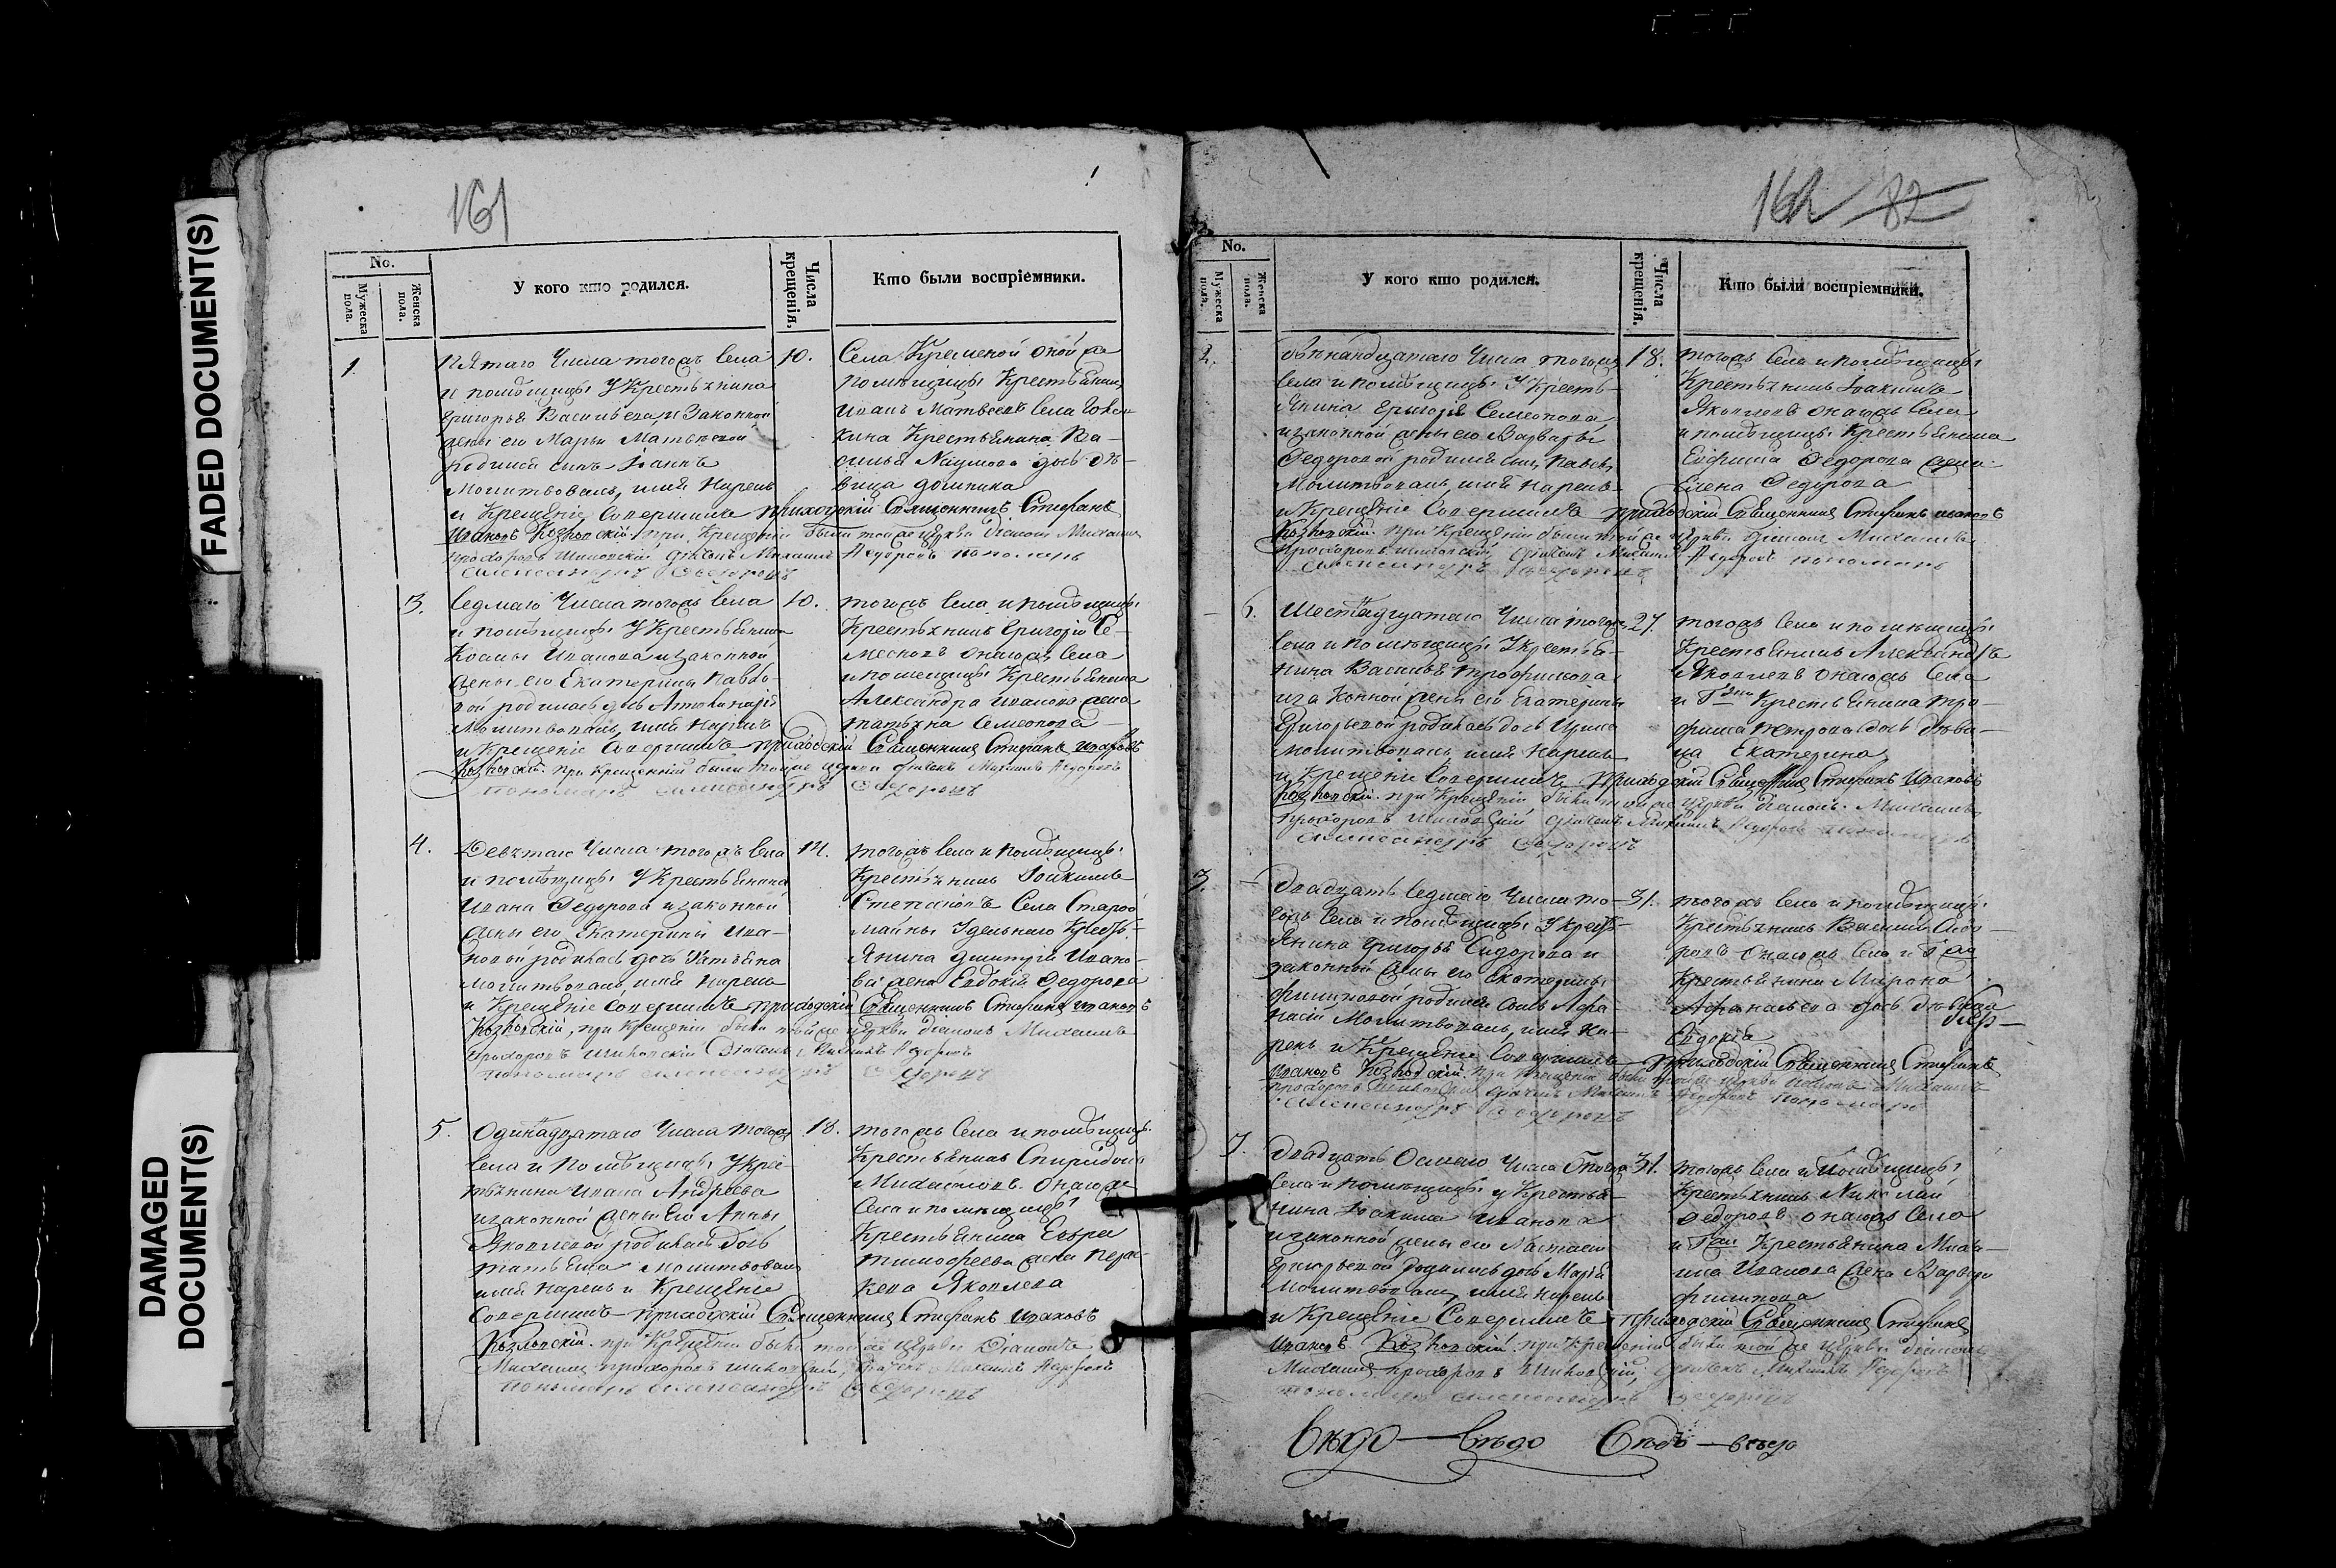 FADED DOCUMENT(S)
DAMAGED
DOCUMENT(S)
161
No.
Мужеска пола.
Женска пола.
У кого кто родился.
Числа крещенія.
Кто были воспріемники.
1.
Пятаго Числа тогожъ Села
и помѣщицы У Крестьянина
Григорья Васильева, и Законной
жены его Марьи Матвѣевой
родился сынъ Іоаннъ
Молитвовалъ, имя Нарекъ
и Крещеніе Совершилъ приходскій Священникъ Стефанъ
Ивановъ Козловскій при Крещеніи были тойже церкви діаконъ Михаилъ
Прохоровъ дьячекъ Михаилъ Федоровъ пономарь
Александръ Федоровъ
10.
Села Кременой оной же
помѣщицы Крестьянинъ
Иванъ Матвеевъ Села
Крестьянина Ва-
силья Наумова дочь дѣ-
вица
3.
Седмаго Числа тогожъ Села
и помѣщицы У Крестьянина
Космы Иванова и законной
жены его Екатерины Павло-
вой родилась дочь
Молитвовалъ, имя Нарекъ
и Крещеніе Совершилъ приходскій Священникъ Стефанъ Ивановъ
Козловскій. при Крещеніи были тойже церкви дьячекъ Михаилъ Федоровъ
пономарь Александръ Федоровъ
10.
тогожъ Села и помѣщицы
Крестьянинъ Григорій Се-
меновъ онагожъ Села
и помещицы Крестьянина
Александра Иванова жена
татьяна Семеонова
4.
Девятаго Числа тогожъ Села
и помѣщицы У Крестьянина
Ивана Федорова и законной
жены его Екатерины Ива-
новой родилась дочь Татьяна
молитвовалъ, имя Нарекъ
и Крещеніе совершилъ приходскій Священникъ Стефанъ Ивановъ
Козловскій, при Крещеніи были тойже церкви діаконъ Михаилъ
Прохоровъ Дьячекъ Михаилъ Федоровъ
пономарь Александръ Федоровъ
14.
тогожъ Села и помѣщицы
Крестьянинъ Іоакимъ
Степановъ Села Старой
майны Удельнаго Кресть-
янина Дмитрія Ивано-
ва жена Евдокія Федорова
5.
Одинадцатаго Числа тогожъ
Села и Помѣщицы У Крес-
тьянина Ивана Андреева
и законной жены Его Анны
Яковлевой родилась дочь
татьяна молитвовалъ
имя нарекъ и Крещеніе
Совершилъ приходскій Священникъ Стефанъ Ивановъ
Козловскій. при Крещеніи были тойже церкви Діаконъ
Михаилъ Прохоровъ дьячекъ Михаилъ Федоровъ
пономарь Александръ Федоровъ
18.
тогожъ Села и помѣщицы
Крестьянинъ Спиридонъ
Михайловъ онагоже
Села и помѣщицы
Крестьянина
тимофеева жена
Яковлева
162 82
No.
Мужеска пола.
Женска пола.
У кого кто родился.
Числа крещенія.
Кто были воспріемники.
2.
Числа тогожъ
Села и помѣщицы У Кресть-
янина Григорія Семеонова
и законной жены его Варвары
Федоровой родился сынъ Павелъ
Молитвовалъ, имя нарекъ
и Крещеніе Совершилъ приходскій Священникъ Стефанъ Ивановъ
Козловскій. при Крещеніи были тойже церкви діаконъ Михаилъ
Прохоровъ дьячекъ Михаилъ Федоровъ пономарь
Александръ Федоровъ
18.
тогожъ Села и помѣщицы
Крестьянинъ Іоакимъ
Яковлевъ онагожъ Села
и помѣщицы Крестьянина
Ефима Федорова жена
Елена Федорова
6.
Шестнадцатаго Числа тогожъ
Села и помѣщицы У Крестья-
нина Василья трофимова
и законной жены его Екатерины
Григорьевой родилась дочь Ирина
молитвовалъ имя нарекъ
и Крещеніе Совершилъ приходскій Священникъ Стефанъ Ивановъ
Козловскій. при Крещеніи были тойже церкви діаконъ Михаилъ
Прохоровъ дьячекъ Михаилъ Федоровъ пономарь
Александръ Федоровъ
27.
тогожъ Села и помѣщицы
Крестьянинъ Александръ
Яковлевъ онагожъ Села
и Крестьянина тро-
фима Петрова дочь дѣви-
ца Екатерина
3.
Двадцать Седмаго Числа то-
гожъ Села и помѣщицы У Крест-
янина Григорья Сидорова и
законной жены его Екатерины
родился сынъ Афа-
насій Молитвовалъ, имя На-
рекъ и Крещеніе Совершилъ приходскій Священникъ Стефанъ
Ивановъ Козловскій. при Крещеніи были тойже церкви діаконъ Михаилъ
Прохоровъ дьячекъ Михаилъ Федоровъ пономарь
Александръ Федоровъ
31.
тогожъ Села и помѣщицы
Крестьянинъ Василій
онагожъ Села и
Крестьянина Мирона
Афанасьева дочь
7.
Двадцать Осмаго Числа тогожъ
Села и помѣщицы у Крестья-
нина Іоакима Иванова
и законной жены его Настасіи
Григорьевой родилась дочь Марія
Молитвовалъ, имя нарекъ
и Крещеніе Совершилъ приходскій Священникъ Стефанъ
Ивановъ Козловскій. при Крещеніи были тойже церкви діаконъ
Михаилъ Прохоровъ дьячекъ Михаилъ Федоровъ
пономарь Александръ Федоровъ
31.
тогожъ Села и Помѣщицы
Крестьянинъ Николай
Федоровъ онагожъ Села
и Крестьянина Миха-
ила Иванова жена Варвара